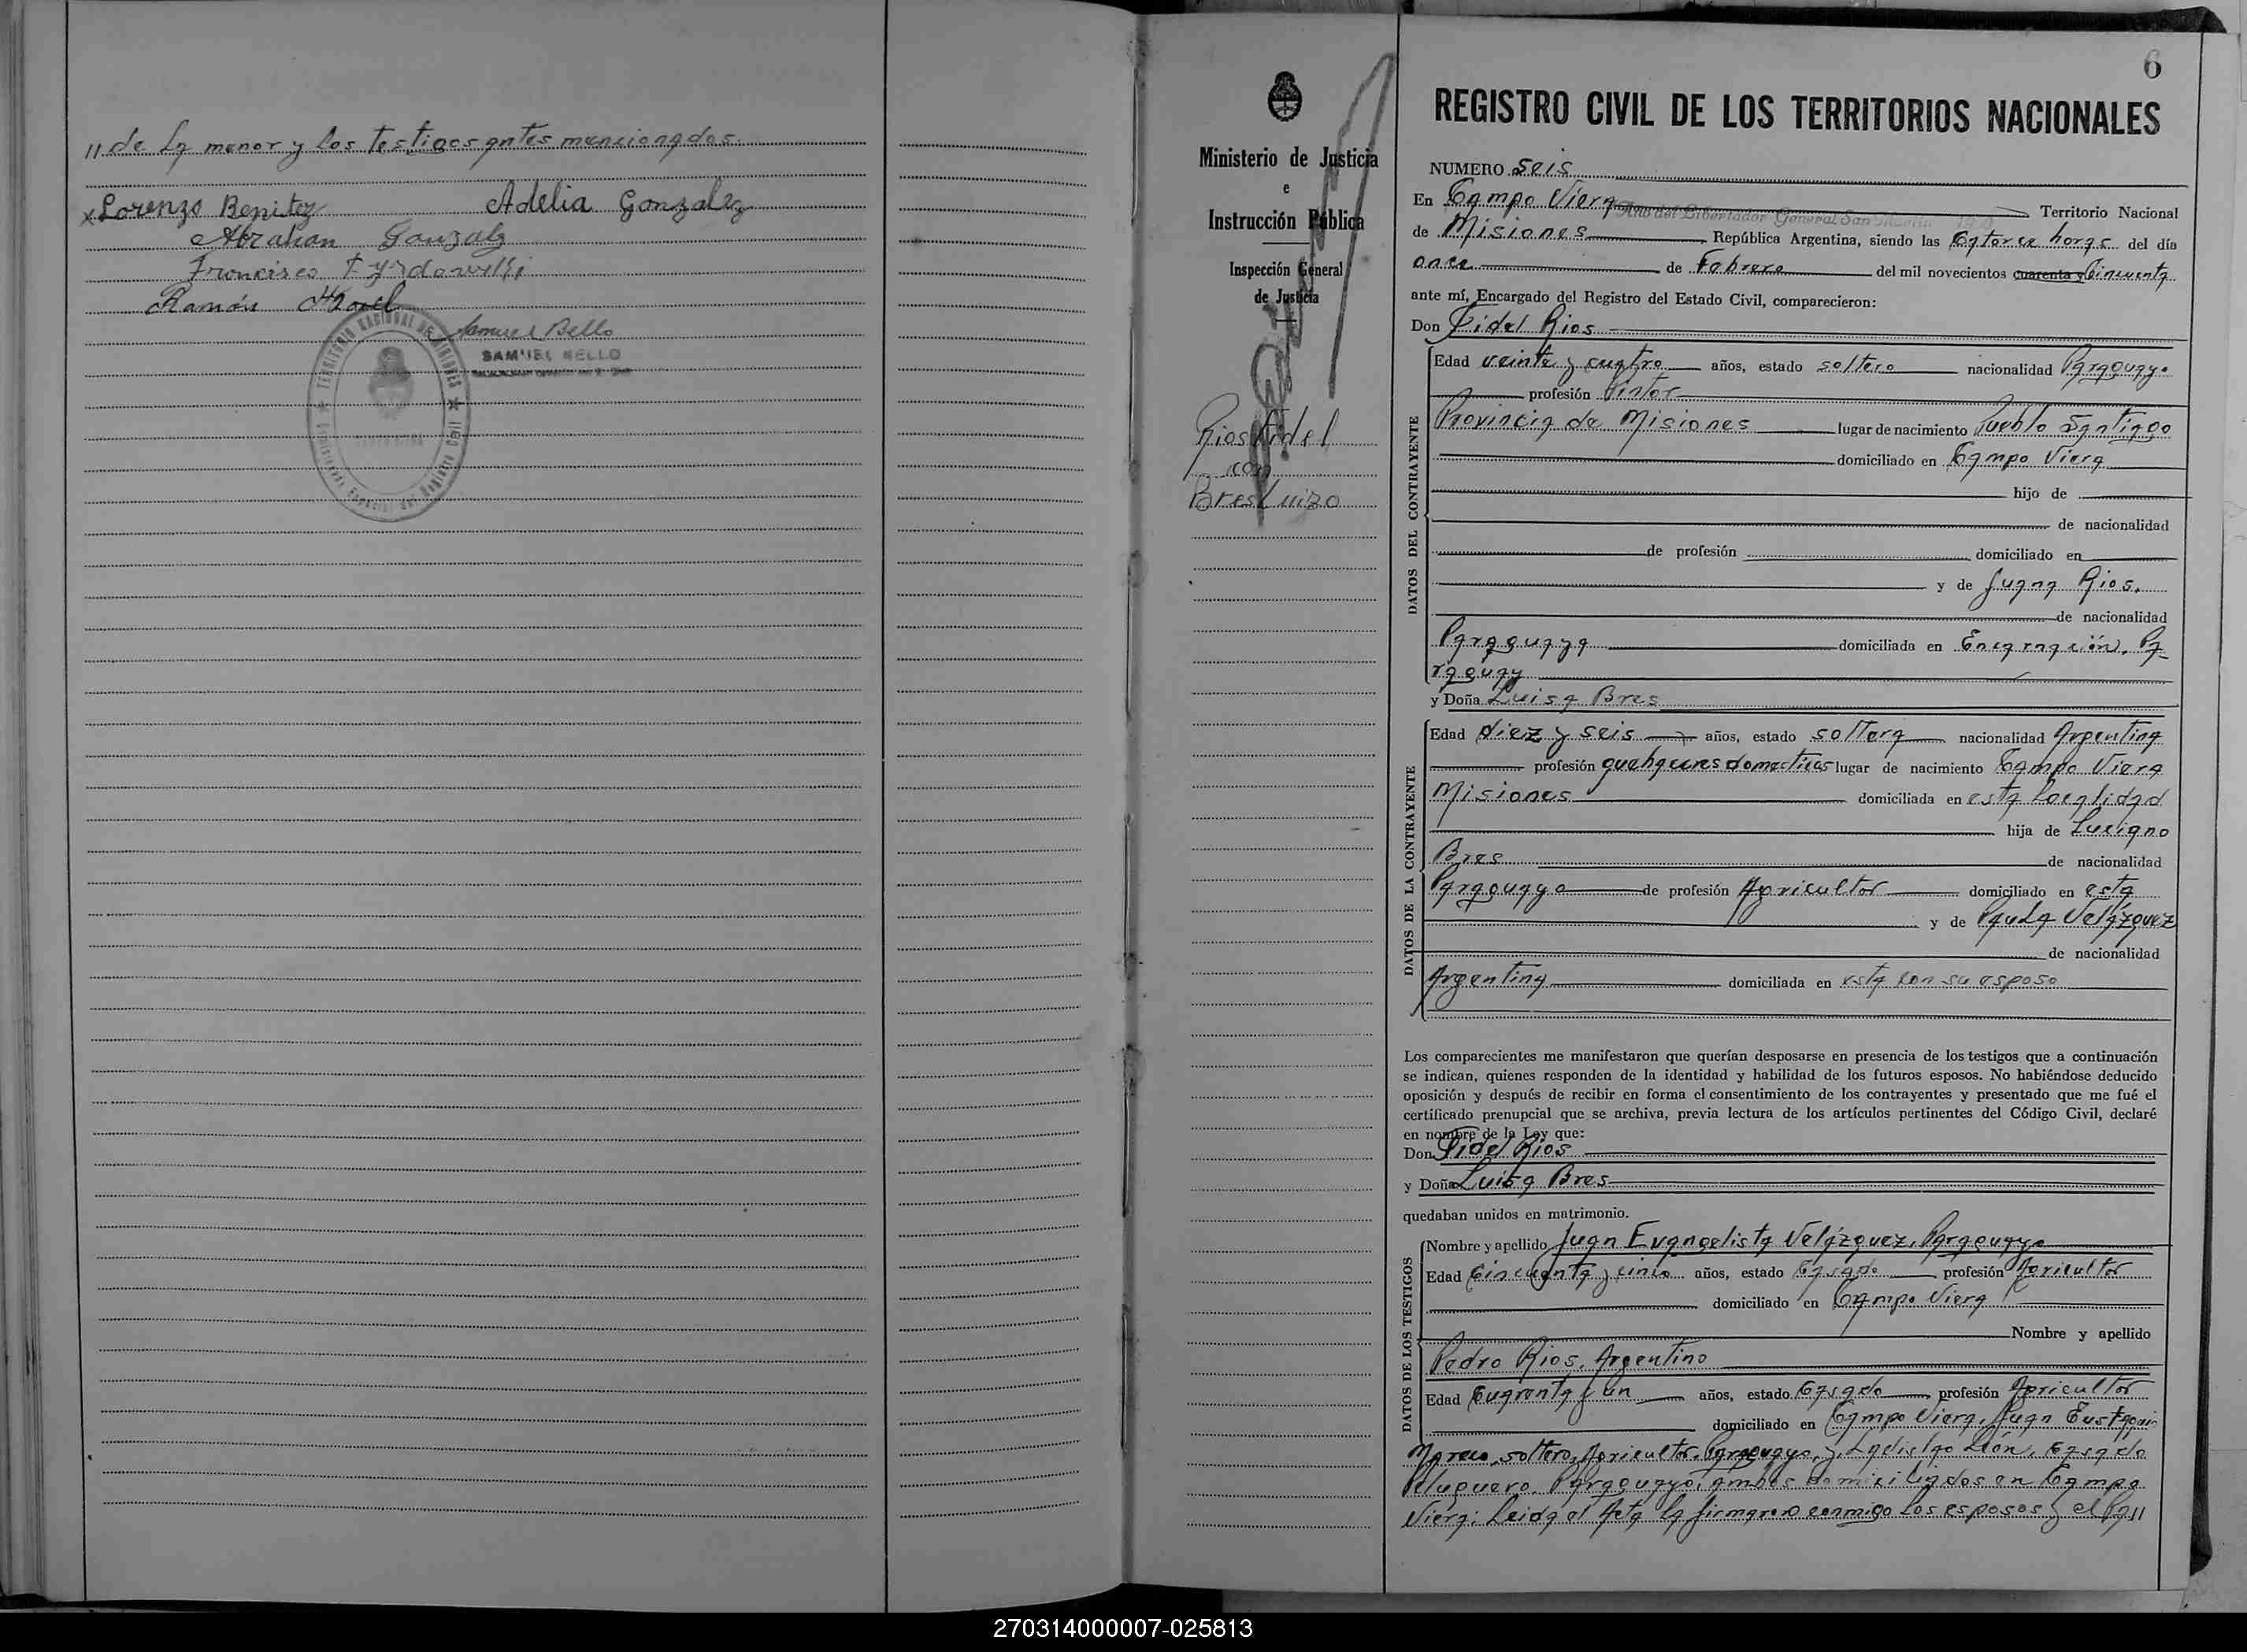 // de La menor y los testigos antes mencionados.
x Lorenzo Benitez Adelia Gonzalez
Abrahan Gonzalez
Francisco
Ramón
Samuel Bello
SAMUEL BELLO
TERRITORIO NACIONAL DE MISIONES
Registro Civil
6
Ministerio de Justicia
e
Instrucción Pública
Inspección General
de Justicia
Rios Fidel
con
Bres Luiza
REGISTRO CIVIL DE LOS TERRITORIOS NACIONALES
NUMERO seis
En Campo Viera Año del Libertador General San Martín Territorio Nacional
de Misiones República Argentina, siendo las Catorce horas del día
once de Febrero del mil novecientos cuarenta y Cincuenta
ante mí, Encargado del Registro del Estado Civil, comparecieron:
Don Fidel Rios
DATOS DEL CONTRAYENTE
Edad veinte y cuatro años, estado soltero nacionalidad Paraguayo
profesión Pintor
Provincia de Misiones lugar de nacimiento Pueblo Santiago
domiciliado en Campo Viera
hijo de
de nacionalidad
de profesión domiciliado en
y de Juana Rios.
de nacionalidad
Paraguaya domiciliada en Encarnación, Pa
raguay
y Doña Luisa Bres
DATOS DE LA CONTRAYENTE
Edad diez y seis años, estado soltera nacionalidad Argentina
profesión quehaceres domesticos lugar de nacimiento Campo Viera
Misiones domiciliada en esta Localidad
hija de Luciano
Bres de nacionalidad
Paraguayo de profesión Agricultor domiciliado en esta
y de Paula Velázquez
de nacionalidad
Argentina domiciliada en esta con su esposo
Los comparecientes me manifestaron que querían desposarse en presencia de los testigos que a continuación
se indican, quienes responden de la identidad y habilidad de los futuros esposos. No habiéndose deducido
oposición y después de recibir en forma el consentimiento de los contrayentes y presentado que me fué el
certificado prenupcial que se archiva, previa lectura de los artículos pertinentes del Código Civil, declaré
en nombre de la Ley que:
Don Fidel Rios
y Doña Luisa Bres
quedaban unidos en matrimonio.
DATOS DE LOS TESTIGOS
Nombre y apellido Juan Evangelista Velázquez, Paraguayo
Edad Cincuenta y cinco años, estado Casado profesión Agricultor
domiciliado en Campo Viera
Nombre y apellido
Pedro Rios, Argentino
Edad Cuarenta y un años, estado Casado profesión Agricultor
domiciliado en Campo Viera, Juan
soltero, Agricultor, Paraguayo, y Ladislao León, Casado
Peluquero, Paraguayo, ambos domiciliados en Campo
Viera; Leida el Acta la firmaron conmigo los esposos y el Pa//
270314000007-025813